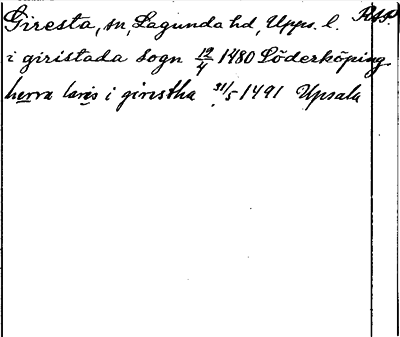 Giresta, sn, Lagunda hd, Upps. l. RAP.
i giristada sogn 12/4 1480 Söderköping
herra laris i giristha 31/5 1491 Upsala